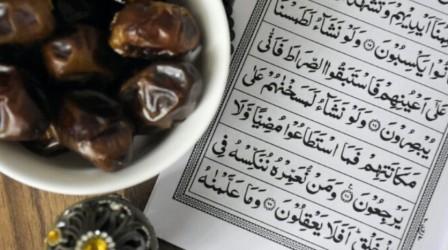 أَيْدِيهِمْ وَتَشْهَدُ
يَكْسِبُونَ ۝٦٥ وَلَوْ نَشَآءُ لَطَمَسْنَا
عَلَىٰٓ أَعْيُنِهِمْ فَٱسْتَبَقُوا۟ ٱلصِّرَٰطَ فَأَنَّىٰ
يُبْصِرُونَ ۝٦٦ وَلَوْ نَشَآءُ لَمَسَخْنَٰهُمْ عَلَىٰ
مَكَانَتِهِمْ فَمَا ٱسْتَطَٰعُوا۟ مُضِيًّا وَلَا
يَرْجِعُونَ ۝٦٧ وَمَن نُّعَمِّرْهُ نُنَكِّسْهُ فِى
أَفَلَا يَعْقِلُونَ ۝٦٨ وَمَا عَلَّمْنَٰهُ